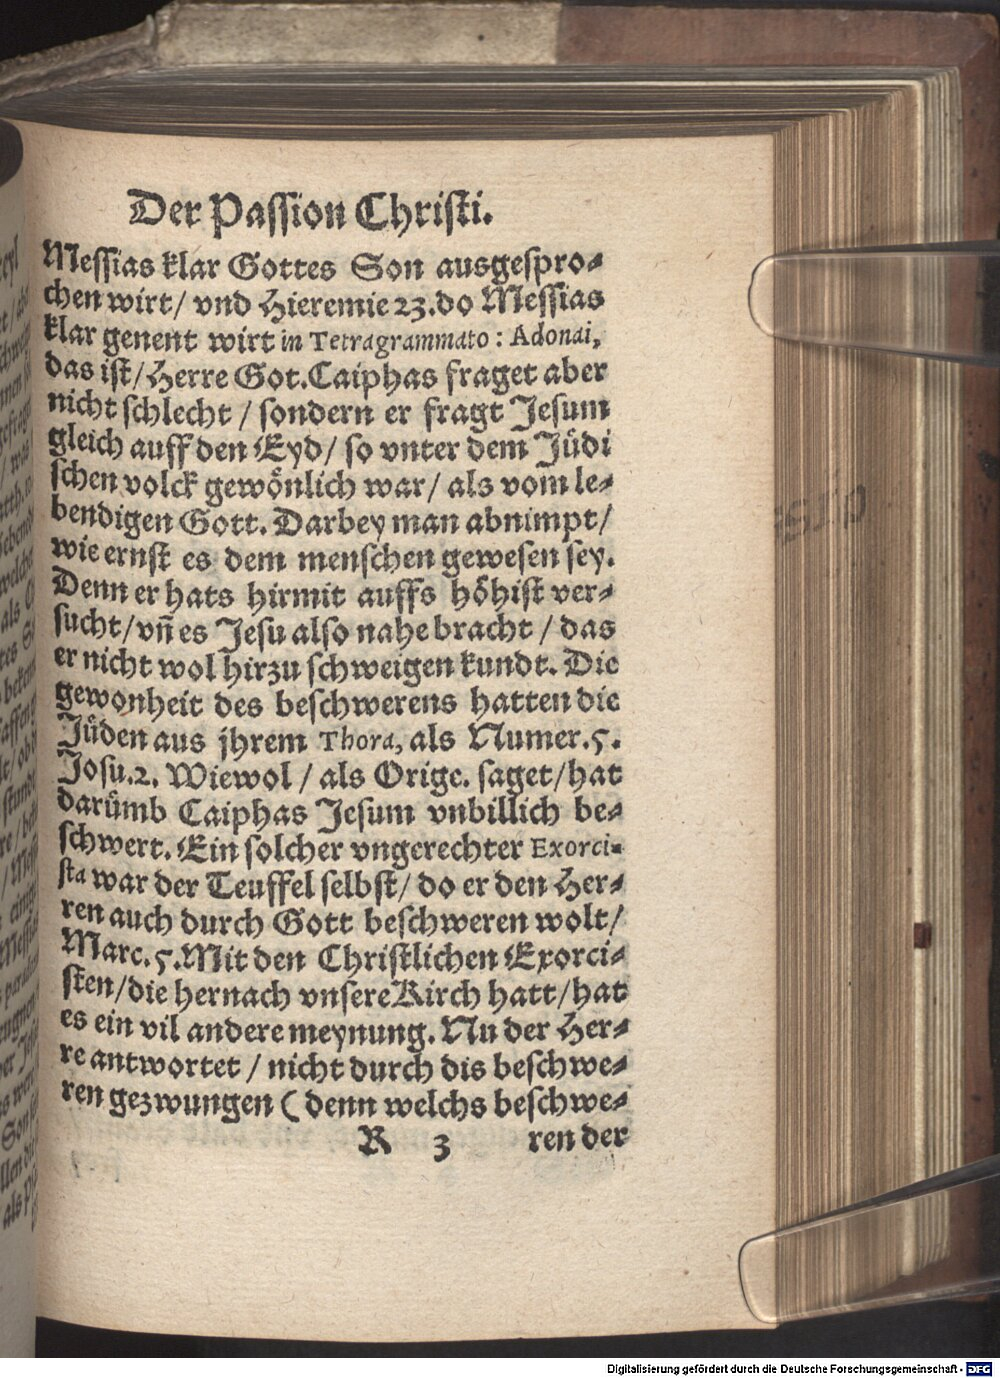 Der Passion Christi.
Messias klar Gottes Son ausgespro⸗
chen wirt/ vnd Hieremie 23. do Messias
klar genent wirt in Tetragrammato : Adonai,
das ist/ Herre Got. Caiphas fraget aber
nicht schlecht / sondern er fragt Jesum
gleich auff den Eyd/ so vnter dem Jüdi
schen volck gewönlich war/ als vom le⸗
bendigen Gott. Darbey man abnimpt/
wie ernst es dem menschen gewesen sey.
Denn er hats hirmit auffs höhist ver⸗
sucht/ vñ es Jesu also nahe bracht / das
er nicht wol hirzu schweigen kundt. Die
gewonheit des beschwerens hatten die
Jüden aus jhrem Thora, als Numer. 5.
Josu. 2. Wiewol / als Orige. saget/ hat
darümb Caiphas Jesum vnbillich be⸗
schwert. Ein solcher vngerechter Exorci⸗
sta war der Teuffel selbst/ do er den Her⸗
ren auch durch Gott beschweren wolt/
Marc. 5. Mit den Christlichen Exorci⸗
sten/ die hernach vnsere Kirch hatt/ hat
es ein vil andere meynung. Nu der Her⸗
re antwortet / nicht durch dis beschwe⸗
ren gezwungen ( denn welchs beschwe⸗
R 3 ren der
Digitalisierung gefördert durch die Deutsche Forschungsgemeinschaft - DFG